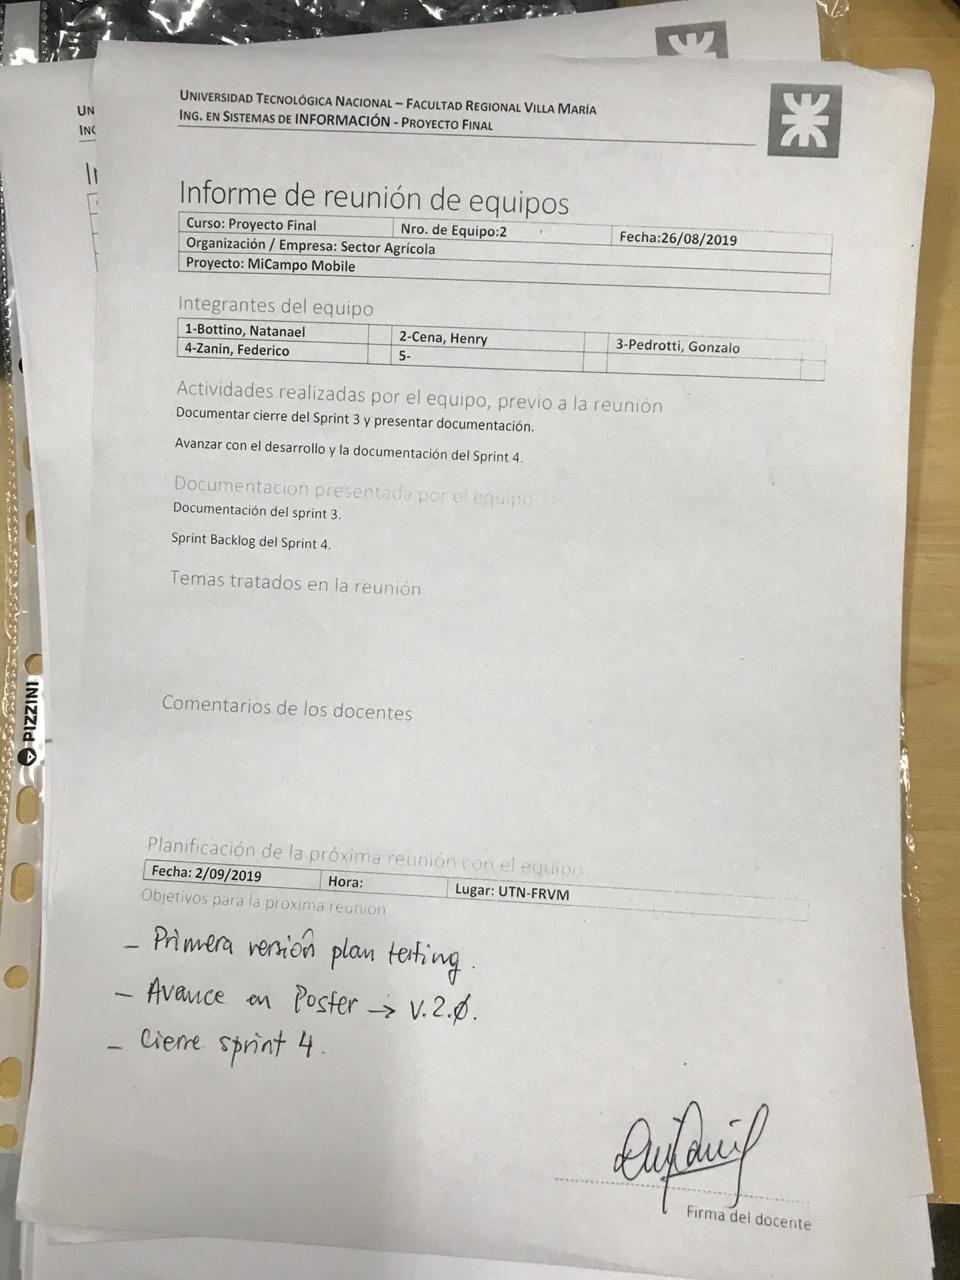 UN
ING
UNIVERSIDAD TECNOLÓGICA NACIONAL – FACULTAD REGIONAL VILLA MARÍA
ING. EN SISTEMAS DE INFORMACIÓN - PROYECTO FINAL
Informe de reunión de equipos
Curso: Proyecto Final Nro. de Equipo:2 Fecha:26/08/2019
Organización / Empresa: Sector Agrícola
Proyecto: MiCampo Mobile
Integrantes del equipo
1-Bottino, Natanael 2-Cena, Henry 3-Pedrotti, Gonzalo
4-Zanin, Federico 5-
Actividades realizadas por el equipo, previo a la reunión
Documentar cierre del Sprint 3 y presentar documentación.
Avanzar con el desarrollo y la documentación del Sprint 4.
Documentacion presentada por el equipo
Documentación del sprint 3.
Sprint Backlog del Sprint 4.
Temas tratados en la reunión
PIZZINI
Comentarios de los docentes
Planificación de la próxima reunión con el equipo
Fecha: 2/09/2019 Hora: Lugar: UTN-FRVM
Objetivos para la próxima reunión
- Primera versión plan testing.
- Avance en Poster → v.2.0.
- Cierre sprint 4.
Firma del docente